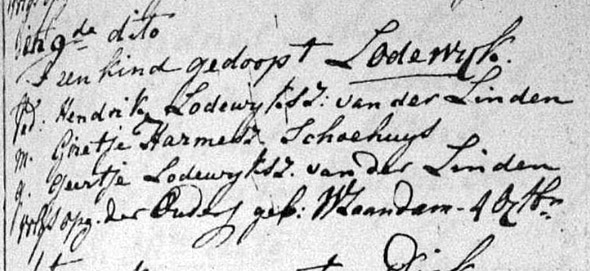 den 9de dito
Een kind gedoopt Lodewyk.
vad. Hendrik Lodewyksz: van der Linden
m. Grietje Harmesz Schoehuys
g. Geertje Lodewyksz. van der Linden
opg. der Ouders geb: Waandam - 4 8tbr
Dirk